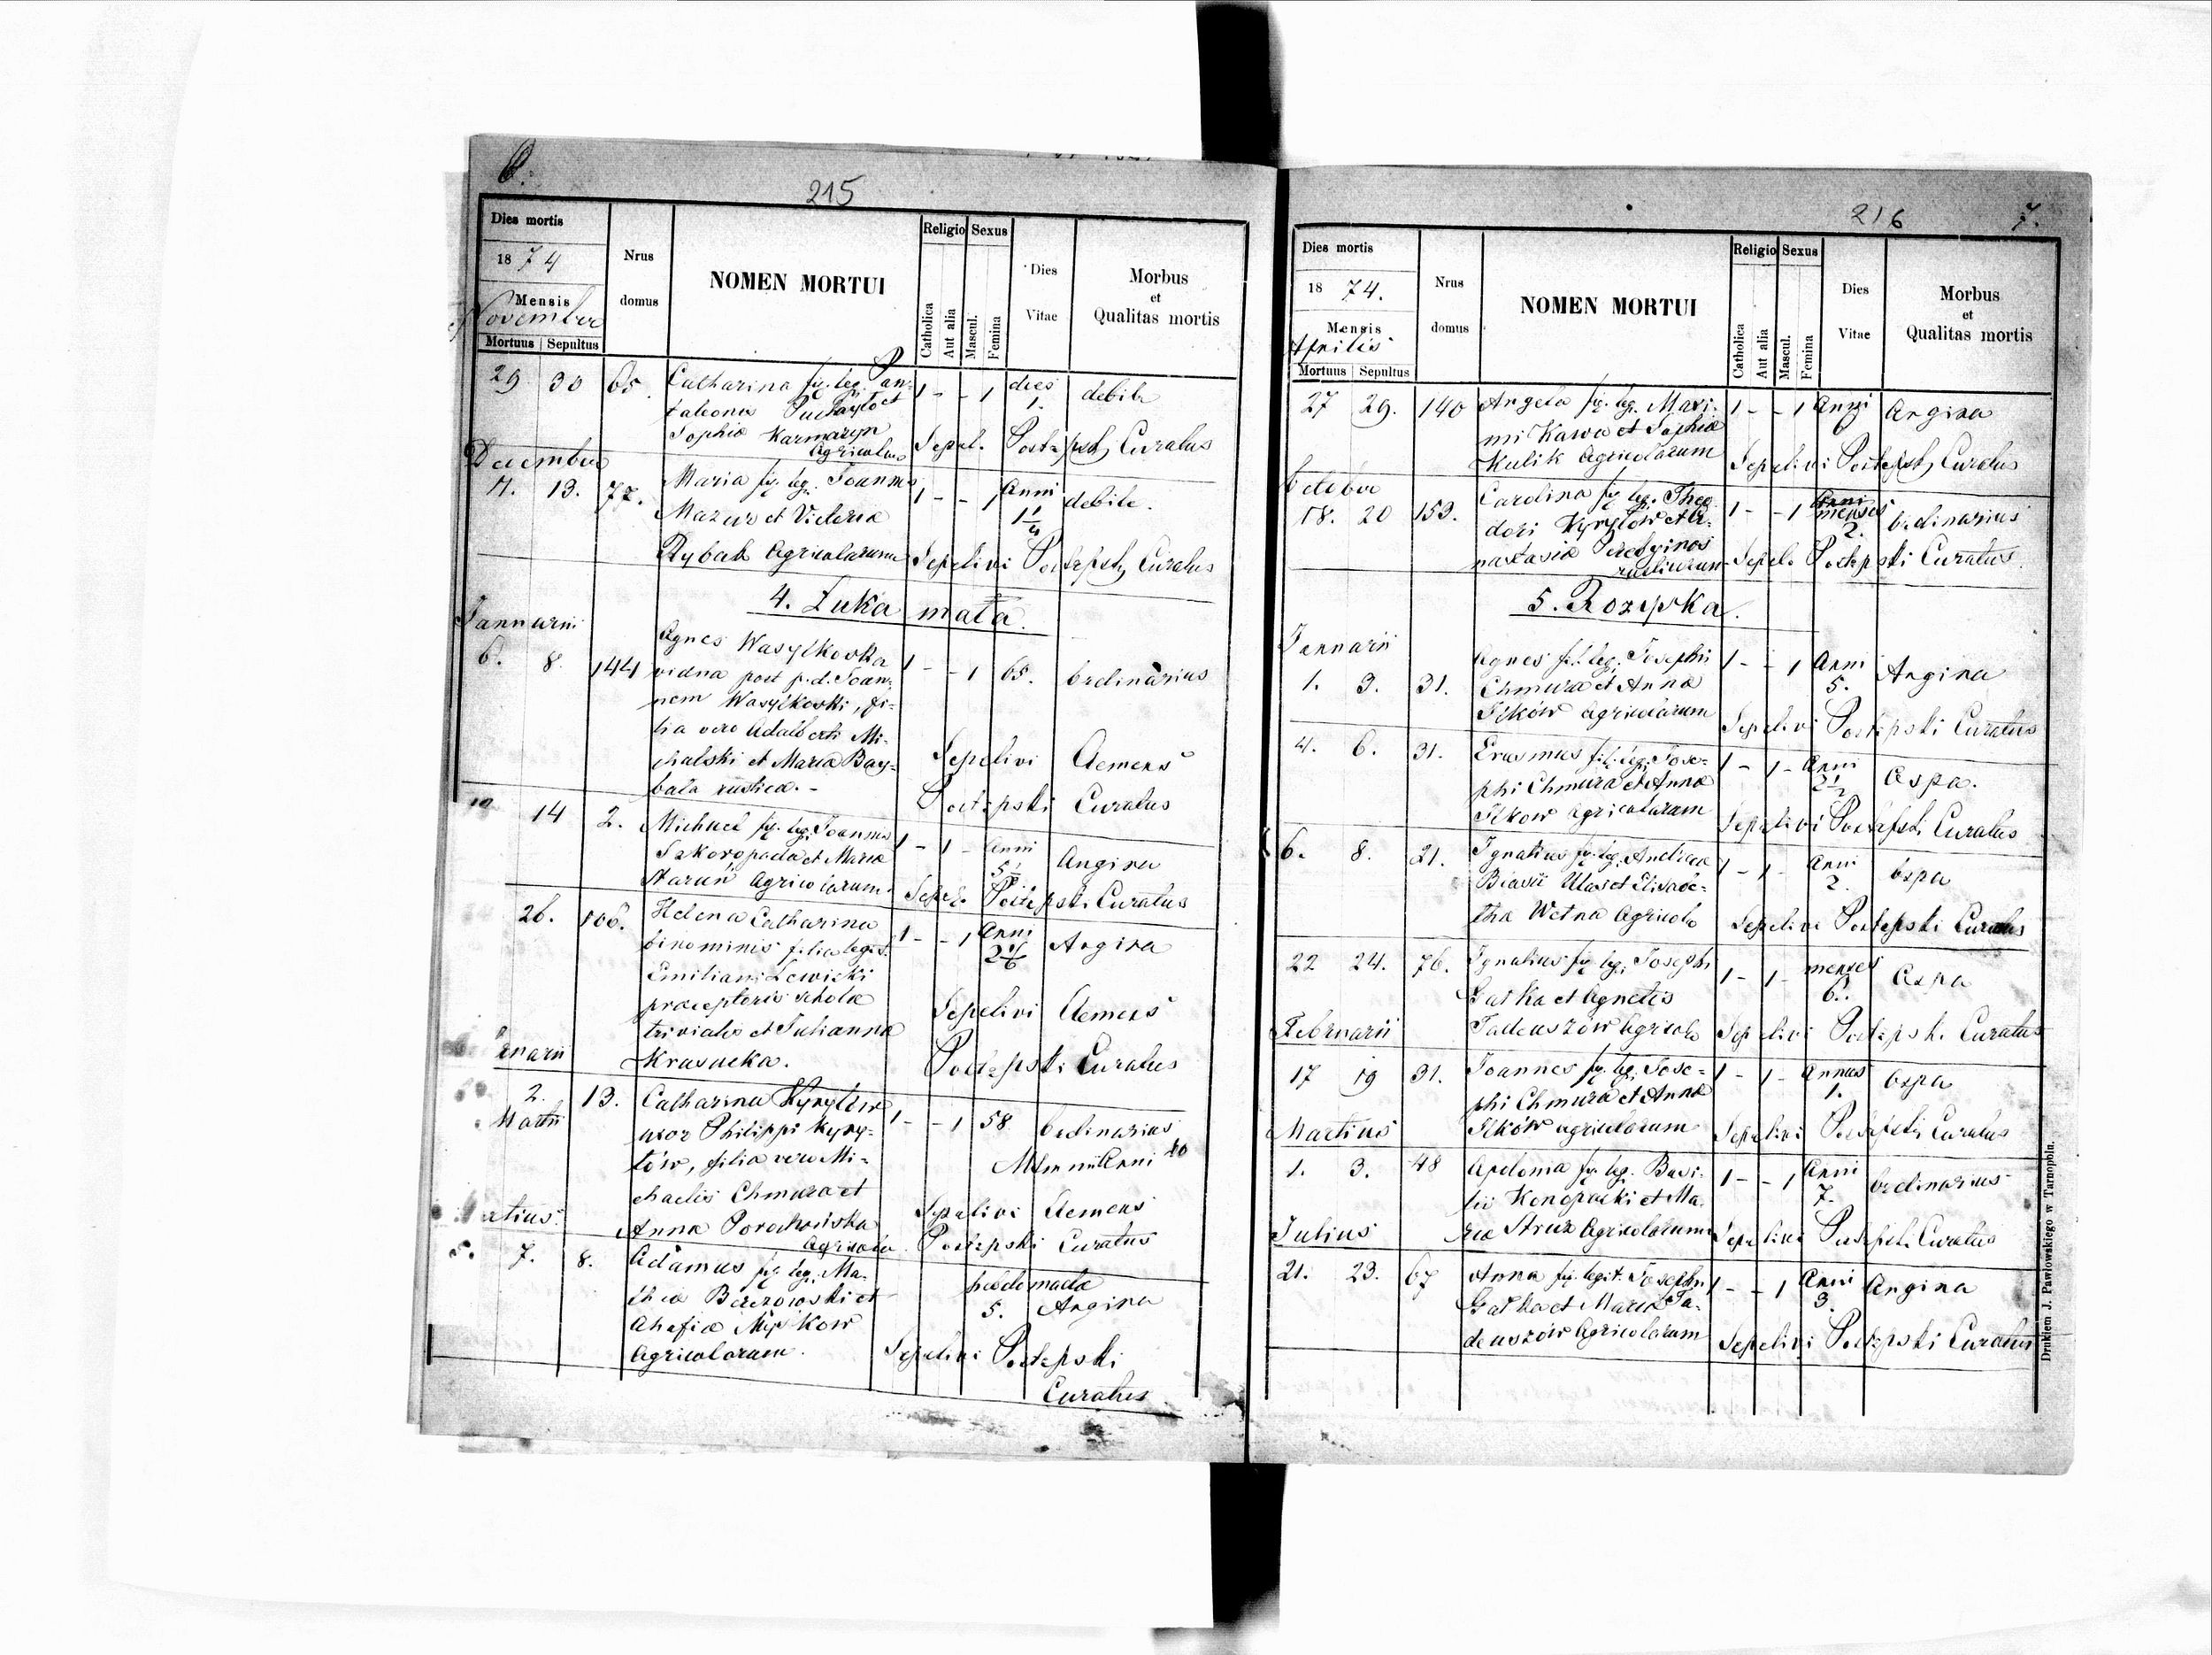 6.
215
Dies mortis
18 74
Mensis
Novembre
Mortuus Sepultus
Nrus
domus
NOMEN MORTUI
Religio Sexus
Catholica
Aut alia
Mascul.
Femina
Dies
Vitae
Morbus
et
Qualitas mortis
29 30 65. Catharina fil. leg. Pan- 1 - - 1 dies debile
taleonis et 1.
Sophia Karmazyn
Agricolar Sepel. Potępski Curatus
December
11. 13. 77. Maria fil. leg. Joannis 1 - - 1 Anni debile.
Mazur et Victoria 1 1/4
Rybak Agricolarum Sepelivi Potępski Curatus
4. Łuka mała.
Januarii
6. 8. 144 Agnes Wasylkoska 1 - - 1 65. Ordinarius
vidua post p. d. Joan-
nem Wasylkoski, fi-
lia vero Adalberti Mi-
chalski et Maria Bay- Sepelivi Clemens
bala rustica. - Potępski Curatus
14 2. Michael fil. leg. Joannis 1 - 1 - Anni Angina
Szkoropada et Maria 5 1/2
Staruń Agricolarum. Sepel. Potępski Curatus
26. 106. Helena Catharina 1 - - 1 Anni Angina
binominis filia legit. 2 1/6
Emiliani Lewicki
praeceptoris schola Sepelivi Clemens
trivialis et Julianna
Krasucka. Potępski Curatus
2. 13. Catharina Kyryłów 1 - - 1 58 Ordinarius
Martii uxor Philippi Kyry-
łów, filia vero Mi-
chaelis Chmura et Sepelivi Clemens
Anna
Agricola Potępski Curatus
5. 7. 8. Adamus fil. leg. Ma- hebdomada
thia Berezowski et 5. Angina
Ahafia
Agricolarum. Sepelivi Potępski
Curatus
216 7.
Dies mortis
18 74.
Mensis
Aprilis
Mortuus Sepultus
Nrus
domus
NOMEN MORTUI
Religio Sexus
Catholica
Aut alia
Mascul.
Femina
Dies
Vitae
Morbus
et
Qualitas mortis
27 29. 140 Angela fil. leg. Maxi- 1 - - 1 Anni Angina
mi Kawa et Sophia 6
Kulik Agricolarum Sepelivi Potępski Curatus
October
18. 20 153. Carolina fil. leg. Theo- 1 - - 1 menses Ordinarius
dori Kyryłów et A- 2.
nastasia
rusticorum Sepel. Potępski Curatus.
5. Rożyska.
Jannarii
1. 3. 31. Agnes fil. leg. Josephi 1 - - 1 Anni Angina
Chmura et Anna 5.
Ilków agricolarum Sepelivi Potępski Curatus
4. 6. 31. Erasmus fil. leg. Jose- 1 - 1 - Anni Ospa.
phi Chmura et Anna 2 1/2
Ilkow Agricolarum Sepelivi Potępski Curatus
6. 8. 21. Ignatius fil. leg. Andrea 1 - 1 - Anni Ospa
et Elisabe- 2.
tha Wetna Agricola Sepelivi Potępski Curatus
22 24. 76. Ignatius fil. leg. Josephi 1 - 1 - menses Ospa
Gałka et Agnetis 6.
Tadeuszów Agricola Sepelivi Potępski Curatus
Februarii
17 19 31. Joannes fil. leg. Jose- 1 - 1 - Annus Ospa
phi Chmura et Anna 1.
Ilków agricolarum Sepelivi Potępski Curatus
Martius
1. 3. 48 Apolonia fil. leg. Basi- 1 - - 1 Anni Ordinarius
lii Konopacki et Ma- 7.
ria Struz Agricolarum Sepelivi Potępski Curatus
Julius
21. 23. 67 Anna fil. legit. Josephi 1 - - 1 Anni Angina
Gałka et Maria Ta- 3.
deuszów Agricolarum Sepelivi Potępski Curatus
Drukiem J. Pawłowskiego w Tarnopolu.